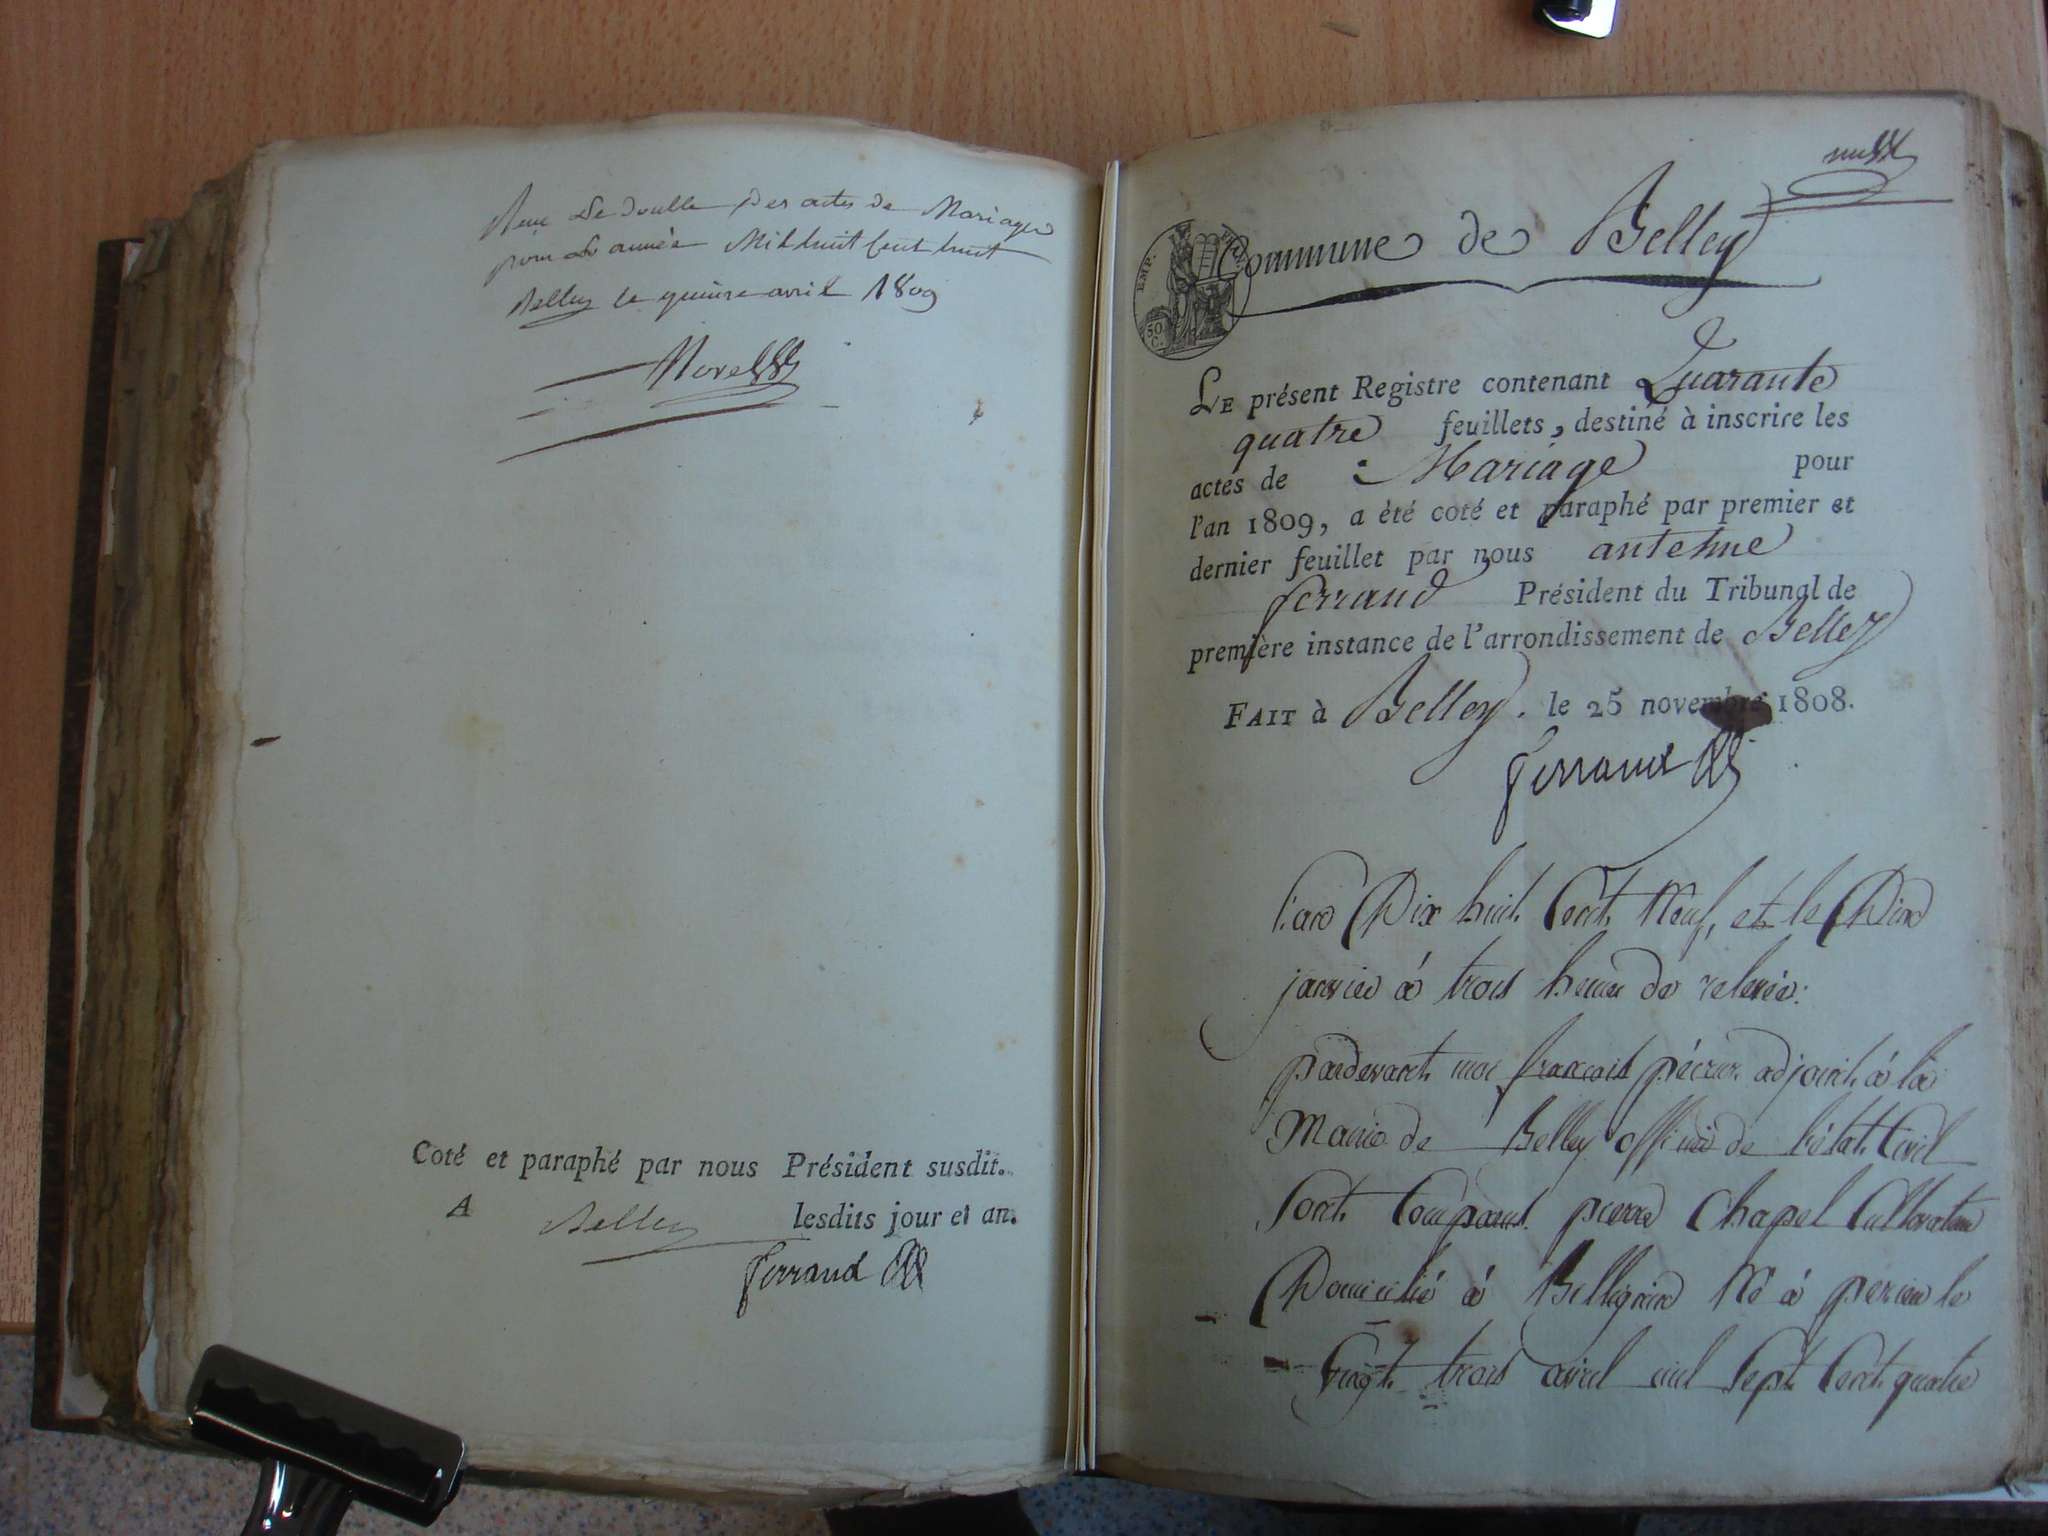 Reçu Le double des actes de Mariages
pour L'année Mil huit cent huit
Belley le quinze avril 1809
Morel
Coté et paraphé par nous Président susdit.
A Belley lesdits jour et an.
Ferrand
Commune de Belley
EMP.
50
C.
LE présent Registre contenant Quarante
quatre feuillets, destiné à inscrire les
actes de Mariage pour
l'an 1809, a été coté et paraphé par premier et
dernier feuillet par nous antelme
ferrand Président du Tribunal de
première instance de l'arrondissement de Belley
FAIT à Belley. le 25 novembre 1808.
Ferrand
l'an Dix huit Cent Neuf, et le
janvier à trois heures de relevée:
pardevant moi françois adjoint à la
Mairie de Belley officier de l'état Civil
Sont Comparus pierre Chapel Cultivateur
Domicilié à Né à le
Vingt trois avril mil Sept Cent quatre